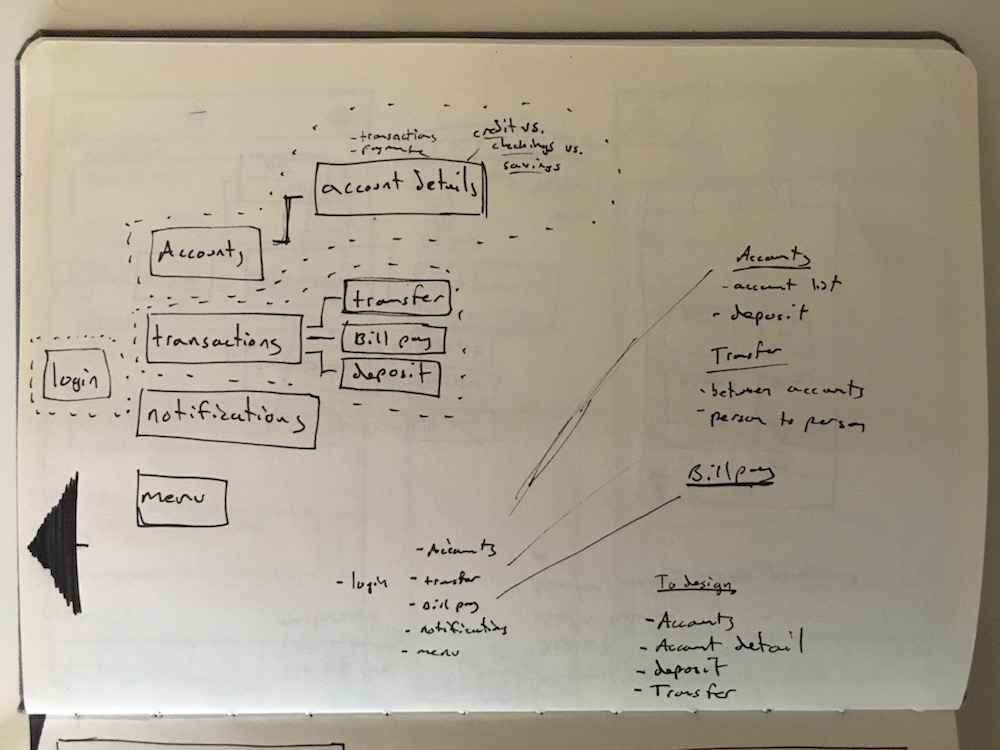 - transactions
- payments
credit vs.
checkings vs.
savings
account details
Accounts
transfer
transactions
Bill pay
deposit
login
notifications
menu
Accounts
- account list
- deposit
Transfer
- between accounts
- person to person
Bill pay
- login
- Accounts
- transfer
- Bill pay
- notifications
- menu
To design
- Accounts
- Account detail
- deposit
- Transfer